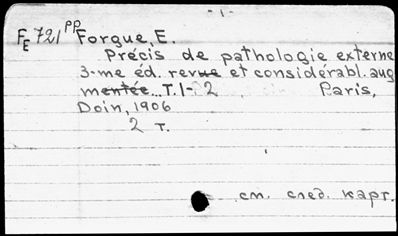 - 1 -
FE 721 pp Forgue, E.
Précis de pathologie externe
3-me éd. revue et considérabl. aug
mentée. T. 1-2 Paris,
Doin, 1906
2 т.
см. след. карт.